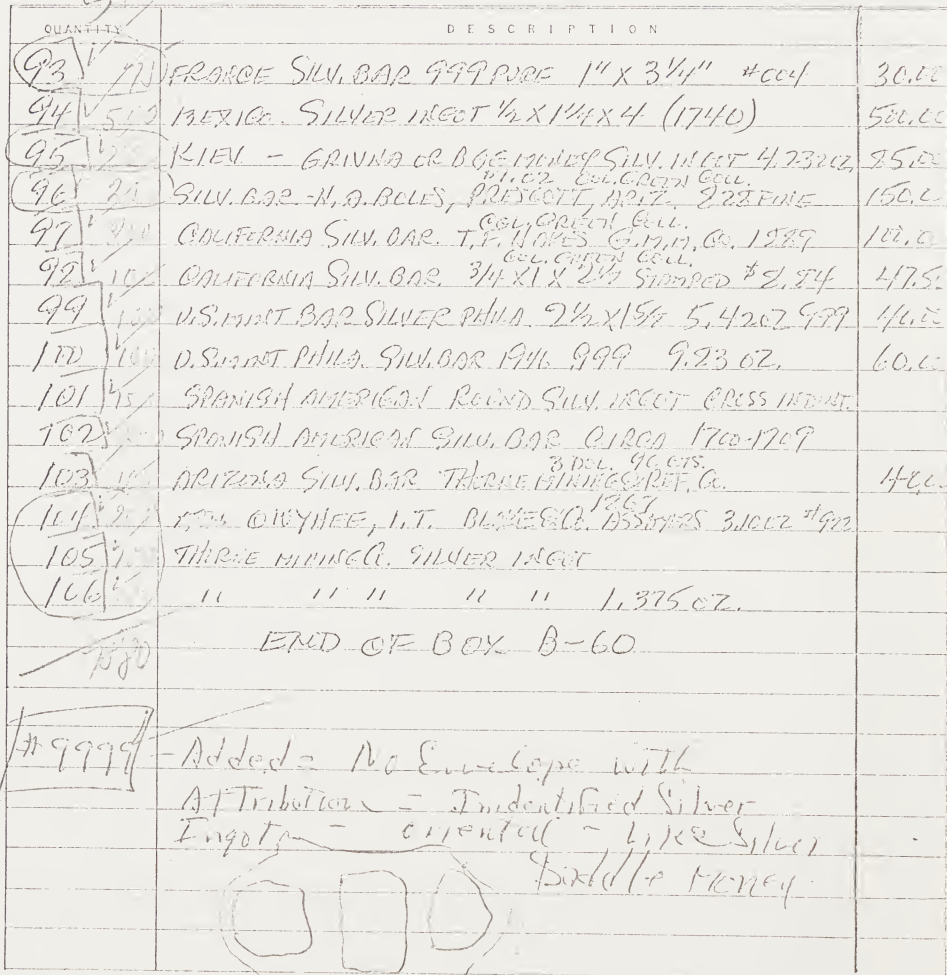 QUANTITY DESCRIPTION
93 FRANCE SILV. BAR 999 PURE 1" X 3 1/4" #004 30.00
94 MEXICO. SILVER INGOT 1/2 X 1 1/4 X 4 (1740) 500.00
95 KIEV - GRIVNA OR BAR MONEY SILV. INGOT 4.23 OZ 85.00
$1.02 COL. GREEN COLL.
96 SILV. BAR - N.A. BOLES, PRESCOTT, ARIZ. 828 FINE 150.0
COL. GREEN COLL.
97 CALIFORNIA SILV. BAR. T.F. G.M.M. CO. 1889
COL. GREEN COLL.
98 CALIFORNIA SILV. BAR. 3/4 X 1 X 2 1/2 STAMPED $2.84 47.5
99 U.S. MINT BAR SILVER PHILA 2 1/2 X 1 5/8 5.42 OZ 999
100 U.S. MINT PHILA. SILV. BAR 1946 .999 9.23 OZ. 60.0
101 SPANISH AMERICAN ROUND SILV. INGOT CROSS INDINT.
102 SPANISH AMERICAN SILV. BAR CIRCA 1700-1709
3 DOL. 96 CTS.
103 ARIZONA SILV. BAR THORNE MINING & REF. Co.
1867
104 OWYHEE, I.T. BLAKE & Co. ASSAYERS 3.10 OZ #922
105 THORNE MINING Co. SILVER INGOT
106 " " " " " 1.375 OZ.
END OF BOX B-60
#9999 - Added = No Envelope with
Attribution - Indentified Silver
Ingots - oriental - Like Silver
Saddle Money